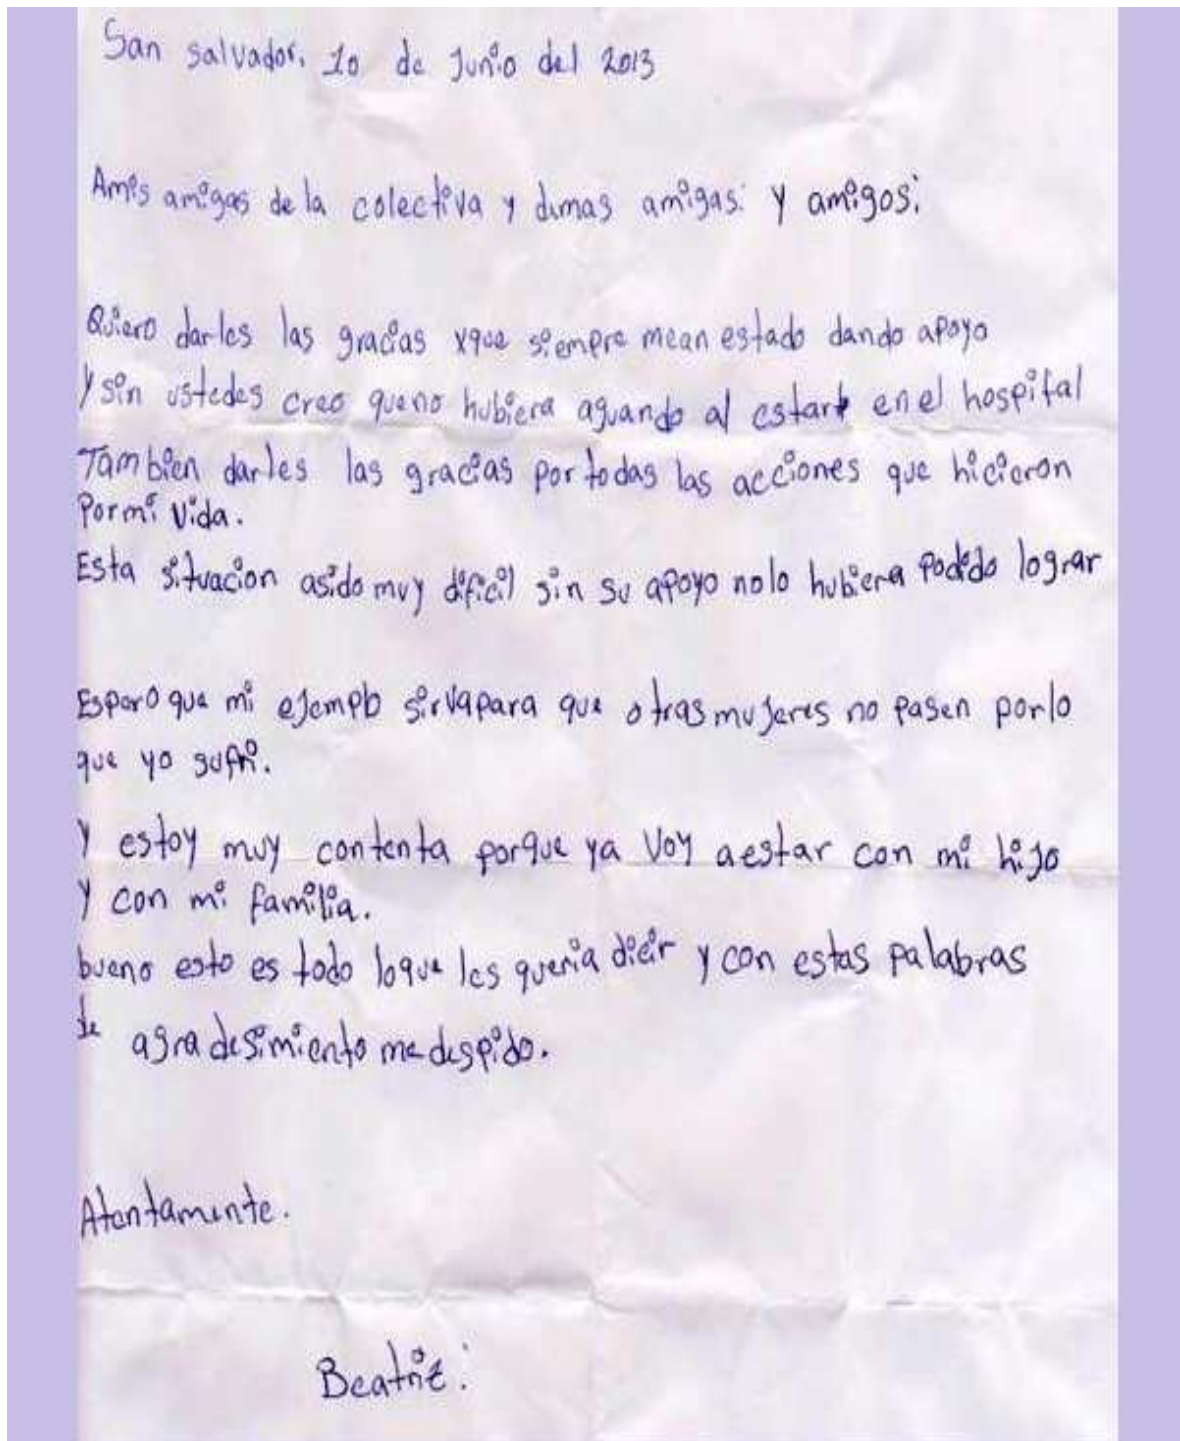 San salvador, 10 de Junio del 2013
Amis amigas de la colectiva y dimas amigas: y amigos:
Quiero darles las gracias xque siempre mean estado dando apoyo
y sin ustedes creo queno hubiera aguando al estart en el hospital
Tambien darles las gracias por todas las acciones que hicieron
Pormi vida.
Esta situacion asido muy dificil sin su apoyo nolo hubiera Podido lograr
Espero que mi ejemplo sirvapara que otras mujeres no pasen porlo
que yo sufri.
y estoy muy contenta porque ya voy aestar con mi hijo
y con mi familia.
bueno esto es todo loque les queria dicir y con estas palabras
de agradesimiento me despido.
Atentamente.
Beatriz: